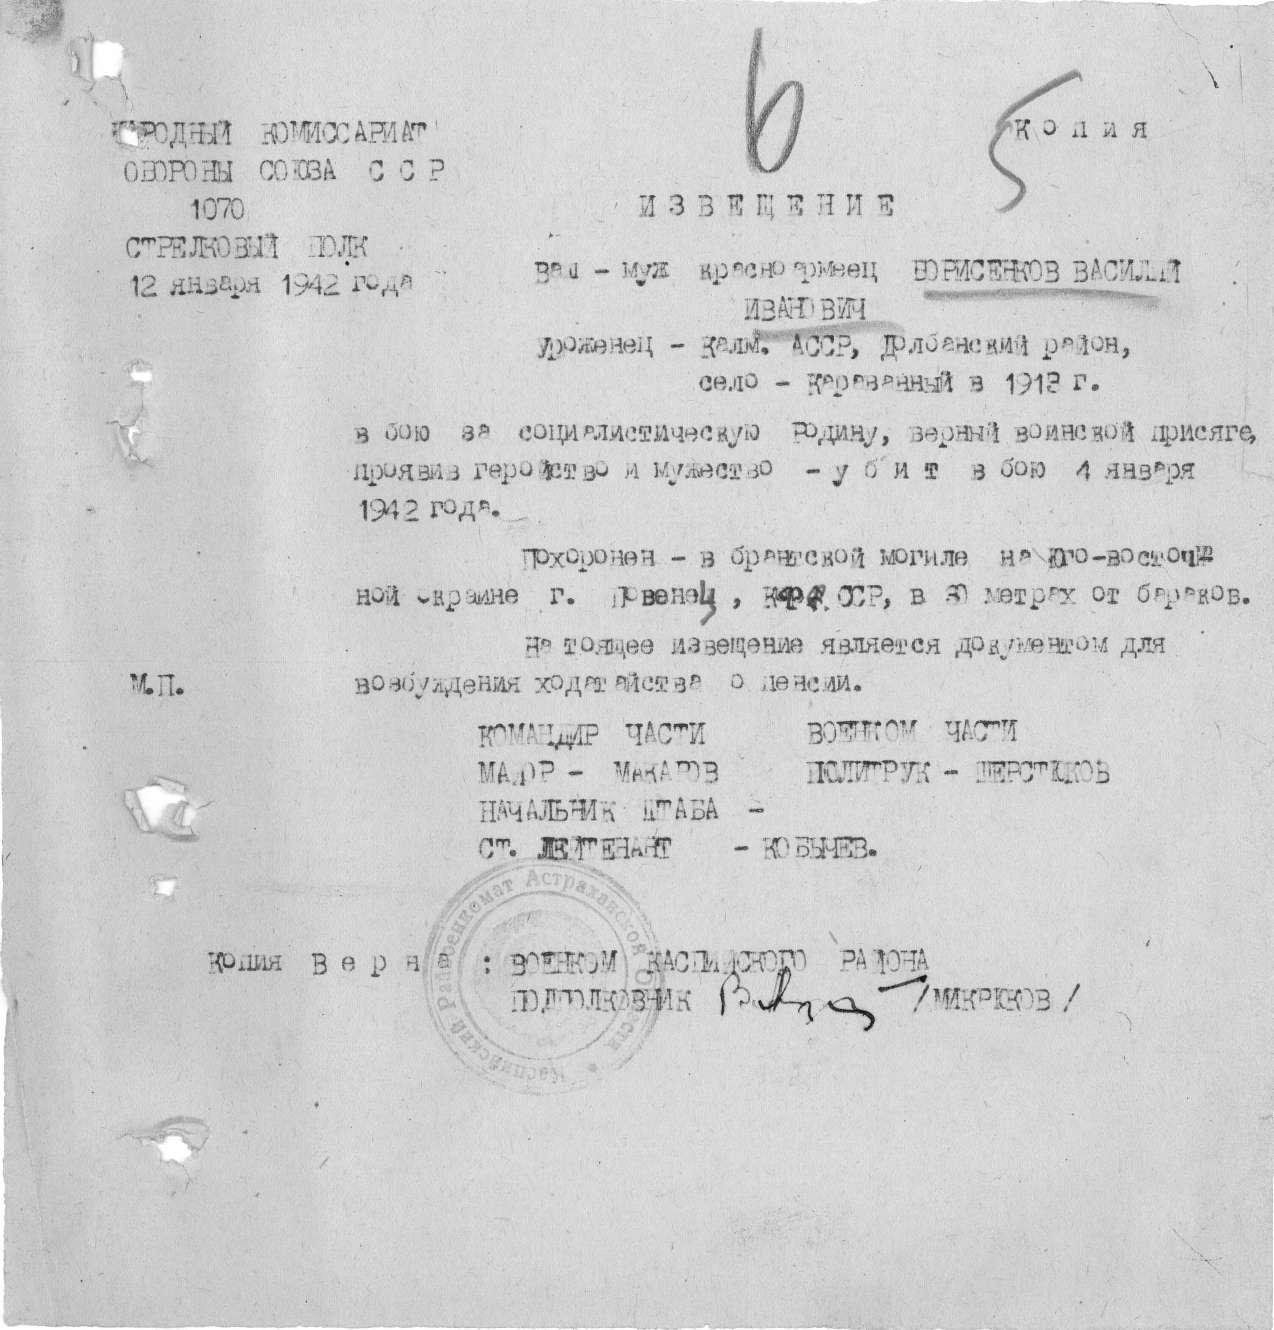 6
5
НАРОДНЫЙ КОМИССАРИАТ
К о п и я
ОБОРОНЫ СОЮЗА С С Р
1070
И З В Е Щ Е Н И Е
СТРЕЛКОВЫЙ ПОЛК
12 января 1942 года
Ваш - муж красноармеец БОРИСЕНКОВ ВАСИЛИЙ
ИВАНОВИЧ
уроженец - Калм. АССР, Долбанский район,
село - Караванный в 1913 г.
в бою за социалистическую Родину, верный воинской присяге,
проявив геройство и мужество - у б и т в бою 4 января
1942 года.
Похоронен - в брантской могиле на юго-восточн
ной окраине г. Повенец, КФ ССР, в 30 метрах от бараков.
На тоящее извещение является документом для
М.П.
возбуждения ходатайства о пенсии.
КОМАНДИР ЧАСТИ ВОЕНКОМ ЧАСТИ
МАЙОР - МАКАРОВ ПОЛИТРУК - ШЕРСТЮКОВ
НАЧАЛЬНИК ШТАБА -
СТ. ЛЕЙТЕНАНТ - КОБЫЧЕВ.
Копия в е р н а : ВОЕНКОМ КАСПИЙСКОГО РАЙОНА
ПОДПОЛКОВНИК /МИКРЮКОВ/
Каспийский Райвоенкомат Астраханской Области